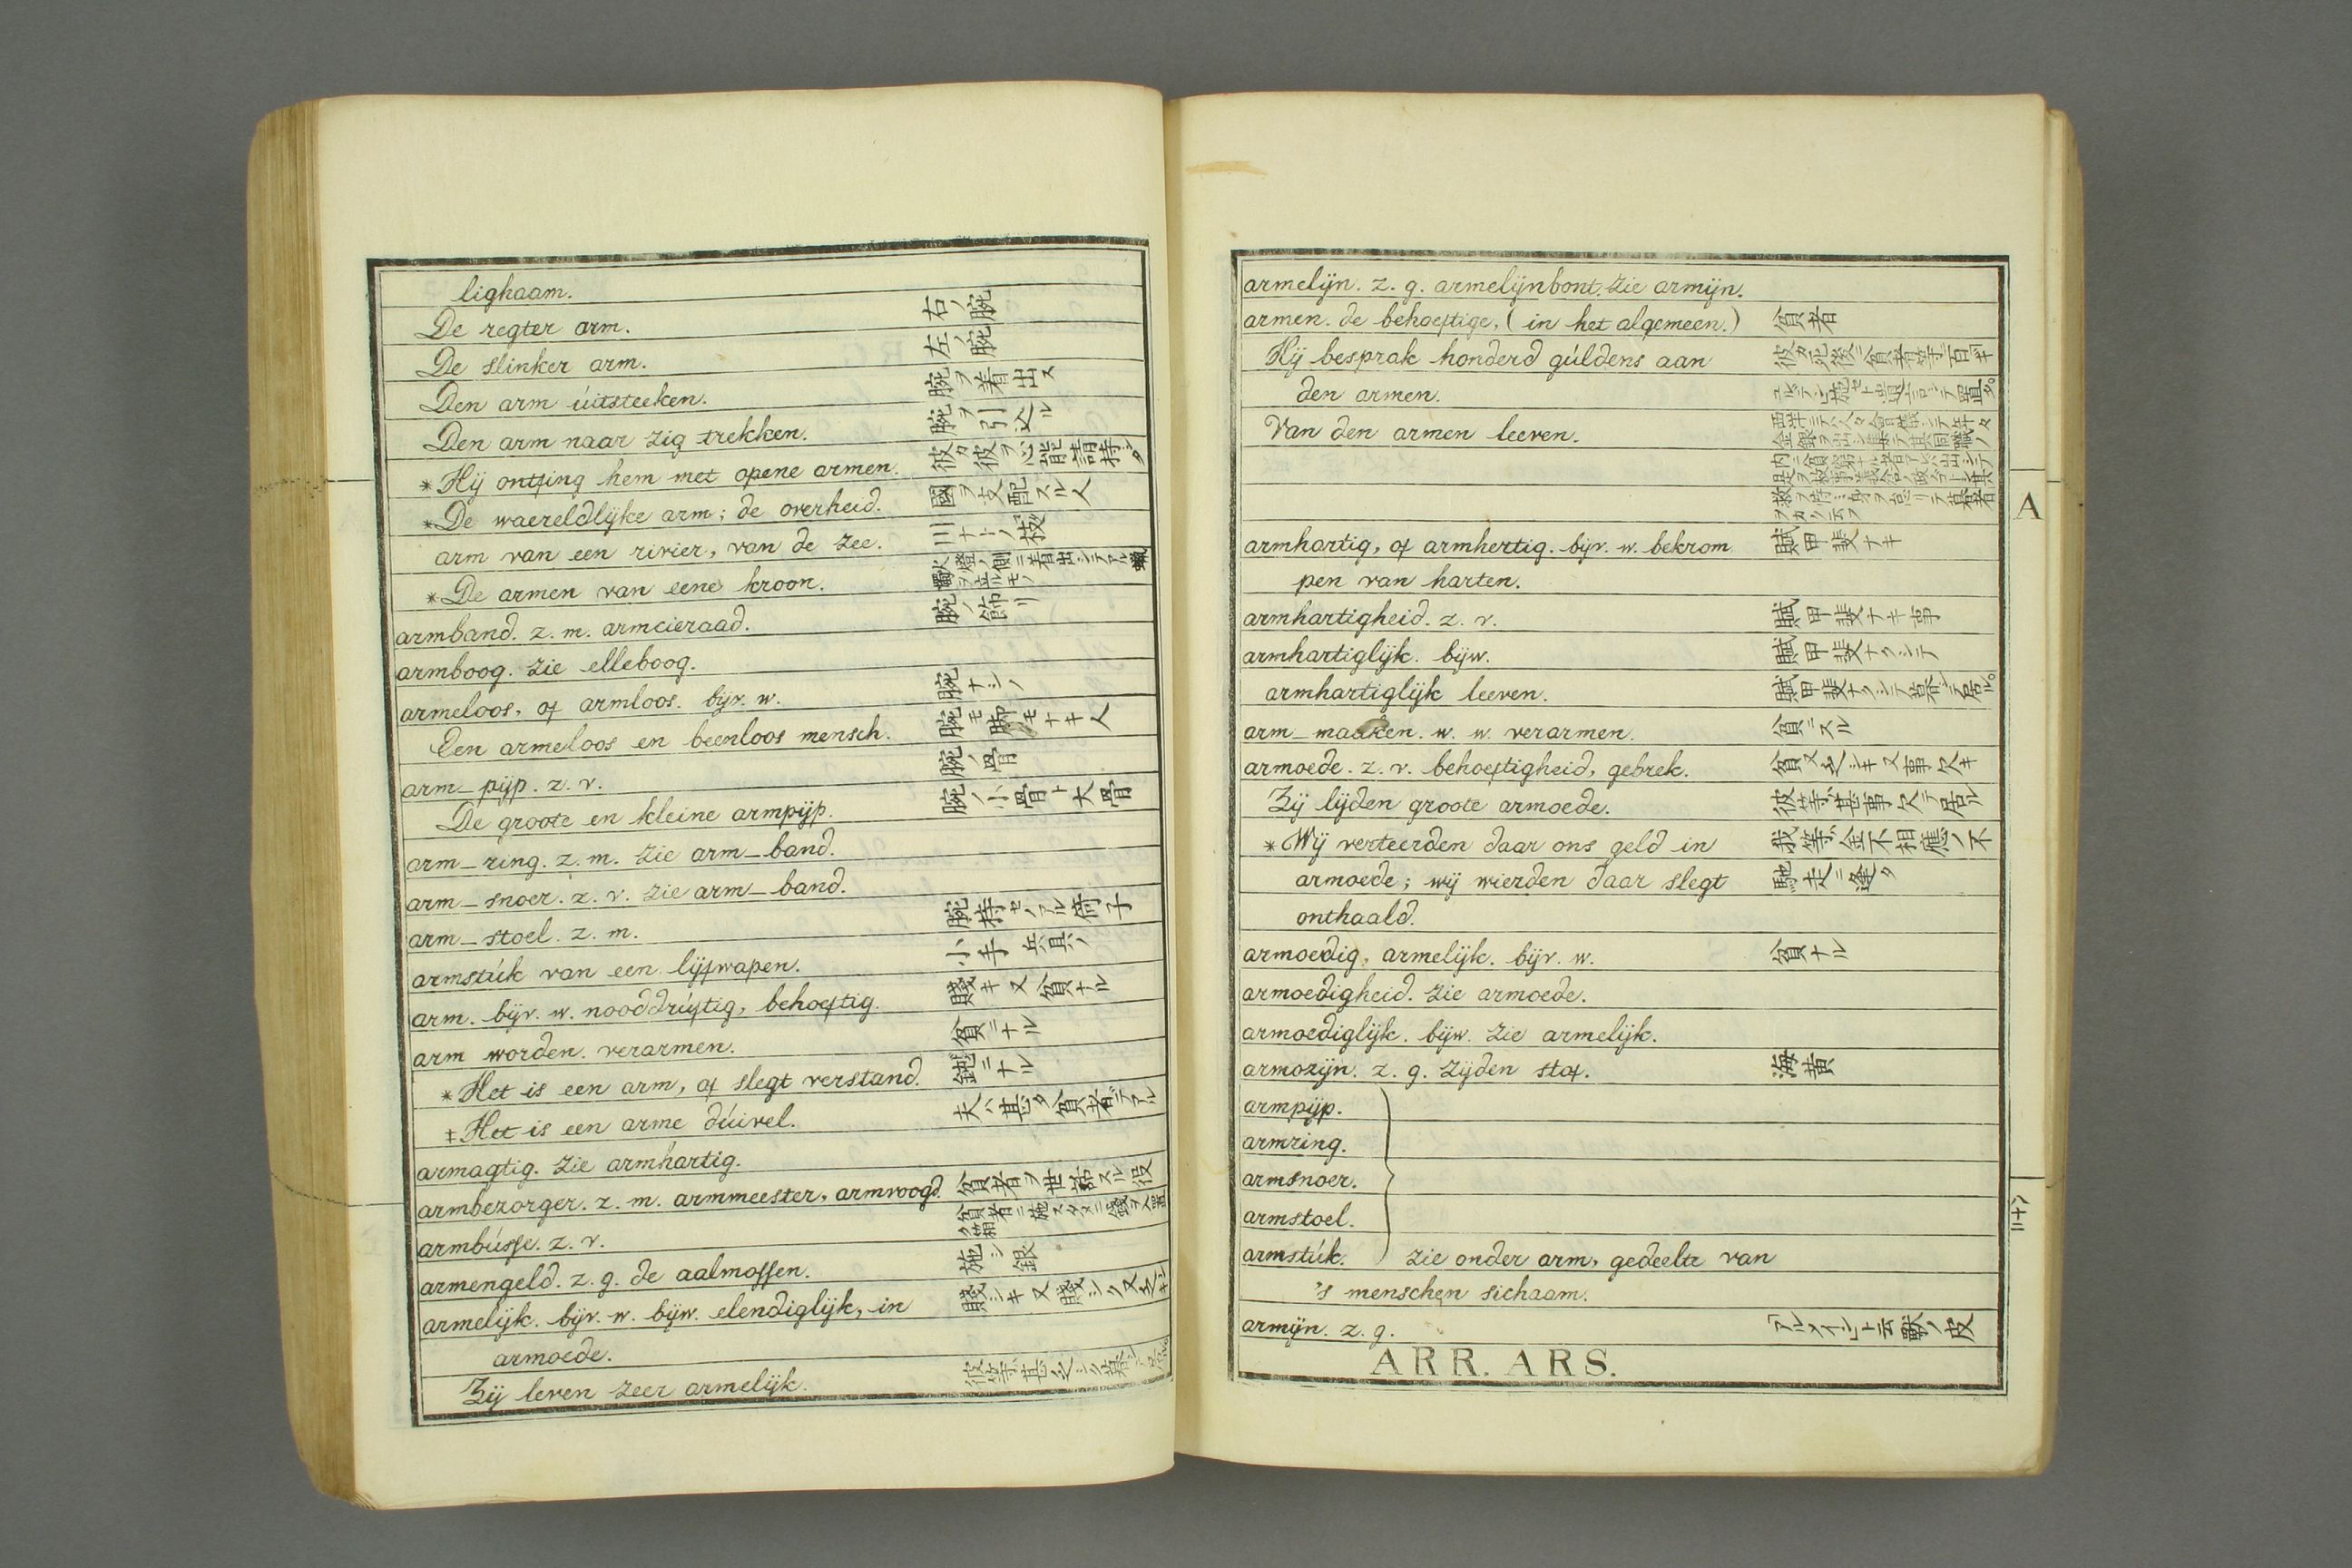 lighaam.
De regter arm. 右ノ腕
De slinker arm. 左ノ腕
Den arm úitsteeken. 腕ヲ着出ス
Den arm naar zig trekken. 腕ヲ引込ル
* Hij ontfing hem met opene armen. 彼カ彼ヲ心能請持シタ
* De waereldlijke arm; de overheid. 國ヲ支配スル人
arm van een rivier, van de zee. 川ナトノ枝
* De armen van eene kroon.
armband. z. m. armcieraad. 腕ノ飾リ
armboog. zie elleboog.
armeloos, of armloos. bijv. w. 腕ナシノ
Een armeloos en beenloos mensch. 腕モ脚モナキ人
arm-pijp. z. v. 腕ノ骨
De groote en kleine armpijp. 腕ノ小骨ト大骨
arm-ring. z. m. zie arm-band.
arm-snoer. z. v. zie arm-band.
arm-stoel. z. m. 腕持セノアル倚子
armstúk van een lijfwapen. 小手 兵具ノ
arm. bijv. w. nooddrúftig, behoeftig. 賤キ又貧ナル
arm worden. verarmen. 貧ニナル
* Het is een arm, of slegt verstand. 鈍ニナル
‡ Het is een arme dúivel. 夫ハ甚タ貧者デアル
armagtig. zie armhartig.
armbezorger. z. m. armmeester, armvoogd. 貧者ヲ世話スル役
armbússe. z. v.
armengeld. z. g. de aalmossen. 施シ銀
armelijk. bijv. w. bijw. elendiglijk, in 賤シキ又賤シク又乏キ
armoede.
Zij leven zeer armelijk. 彼等ハ甚乏シク暮シテ居ル。
armelijn. z. g. armelijnbont. zie armijn.
armen. de behoeftige, (in het algemeen.) 貧者
Hij besprak honderd gúldens aan 彼カ死後ニ貧者等ニ百ギ
den armen. ユルデン施セト遺言シテ置タ。
Van den armen leeven.
armhartig, of armhertig. bijv. w. bekrom 賦甲斐ナキ
pen van harten.
armhartigheid. z. v. 賦甲斐ナキ事
armhartiglijk. bijw. 賦甲斐ナクシテ
armhartiglijk leeven. 賦甲斐ナクシテ暮シテ居ル。
arm-maaken. w. w. verarmen. 貧ニスル
armoede. z. v. behoeftigheid, gebrek. 貧又乏シキ又事欠キ
Zij lijden groote armoede. 彼等ハ甚事欠テ居ル
* Wij verteerden daar ons geld in 我等ハ金不相應ノ不
armoede; wij wierden daar slegt 馳走ニ逢タ
onthaald.
armoedig, armelijk. bijv. w. 貧ナル
armoedigheid. zie armoede.
armoediglijk. bijw. zie armelijk.
armozijn. z. g. zijden stof. 海黄
armpijp.
armring.
armsnoer.
armstoel.
armstúk. zie onder arm, gedeelte van
's menschen lichaam.
armijn. z. g. 「アルメイン」ト云獸ノ皮
ARR. ARS.
A